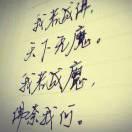 我若成佛，
天下无魔。
我若成魔，
佛奈我何。